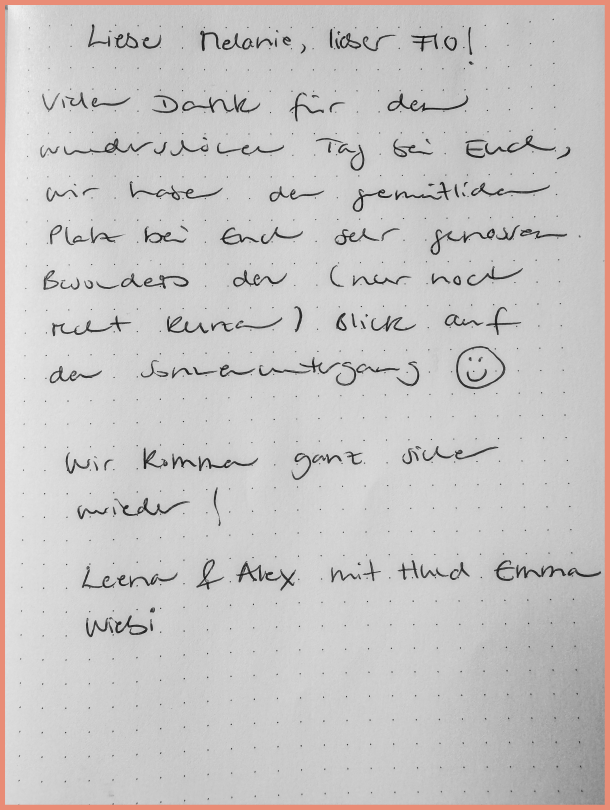 Liebe Melanie, lieber Flo!
Vielen Dank für den
wunderschönen Tag bei Euch,
wir haben den gemütlichen
Platz bei Euch sehr genossen.
Besonders den (nur noch
recht kurzen) Blick auf
den Sonnenuntergang ☺
Wir kommen ganz sicher
wieder!
Leena & Alex mit Hund Emma